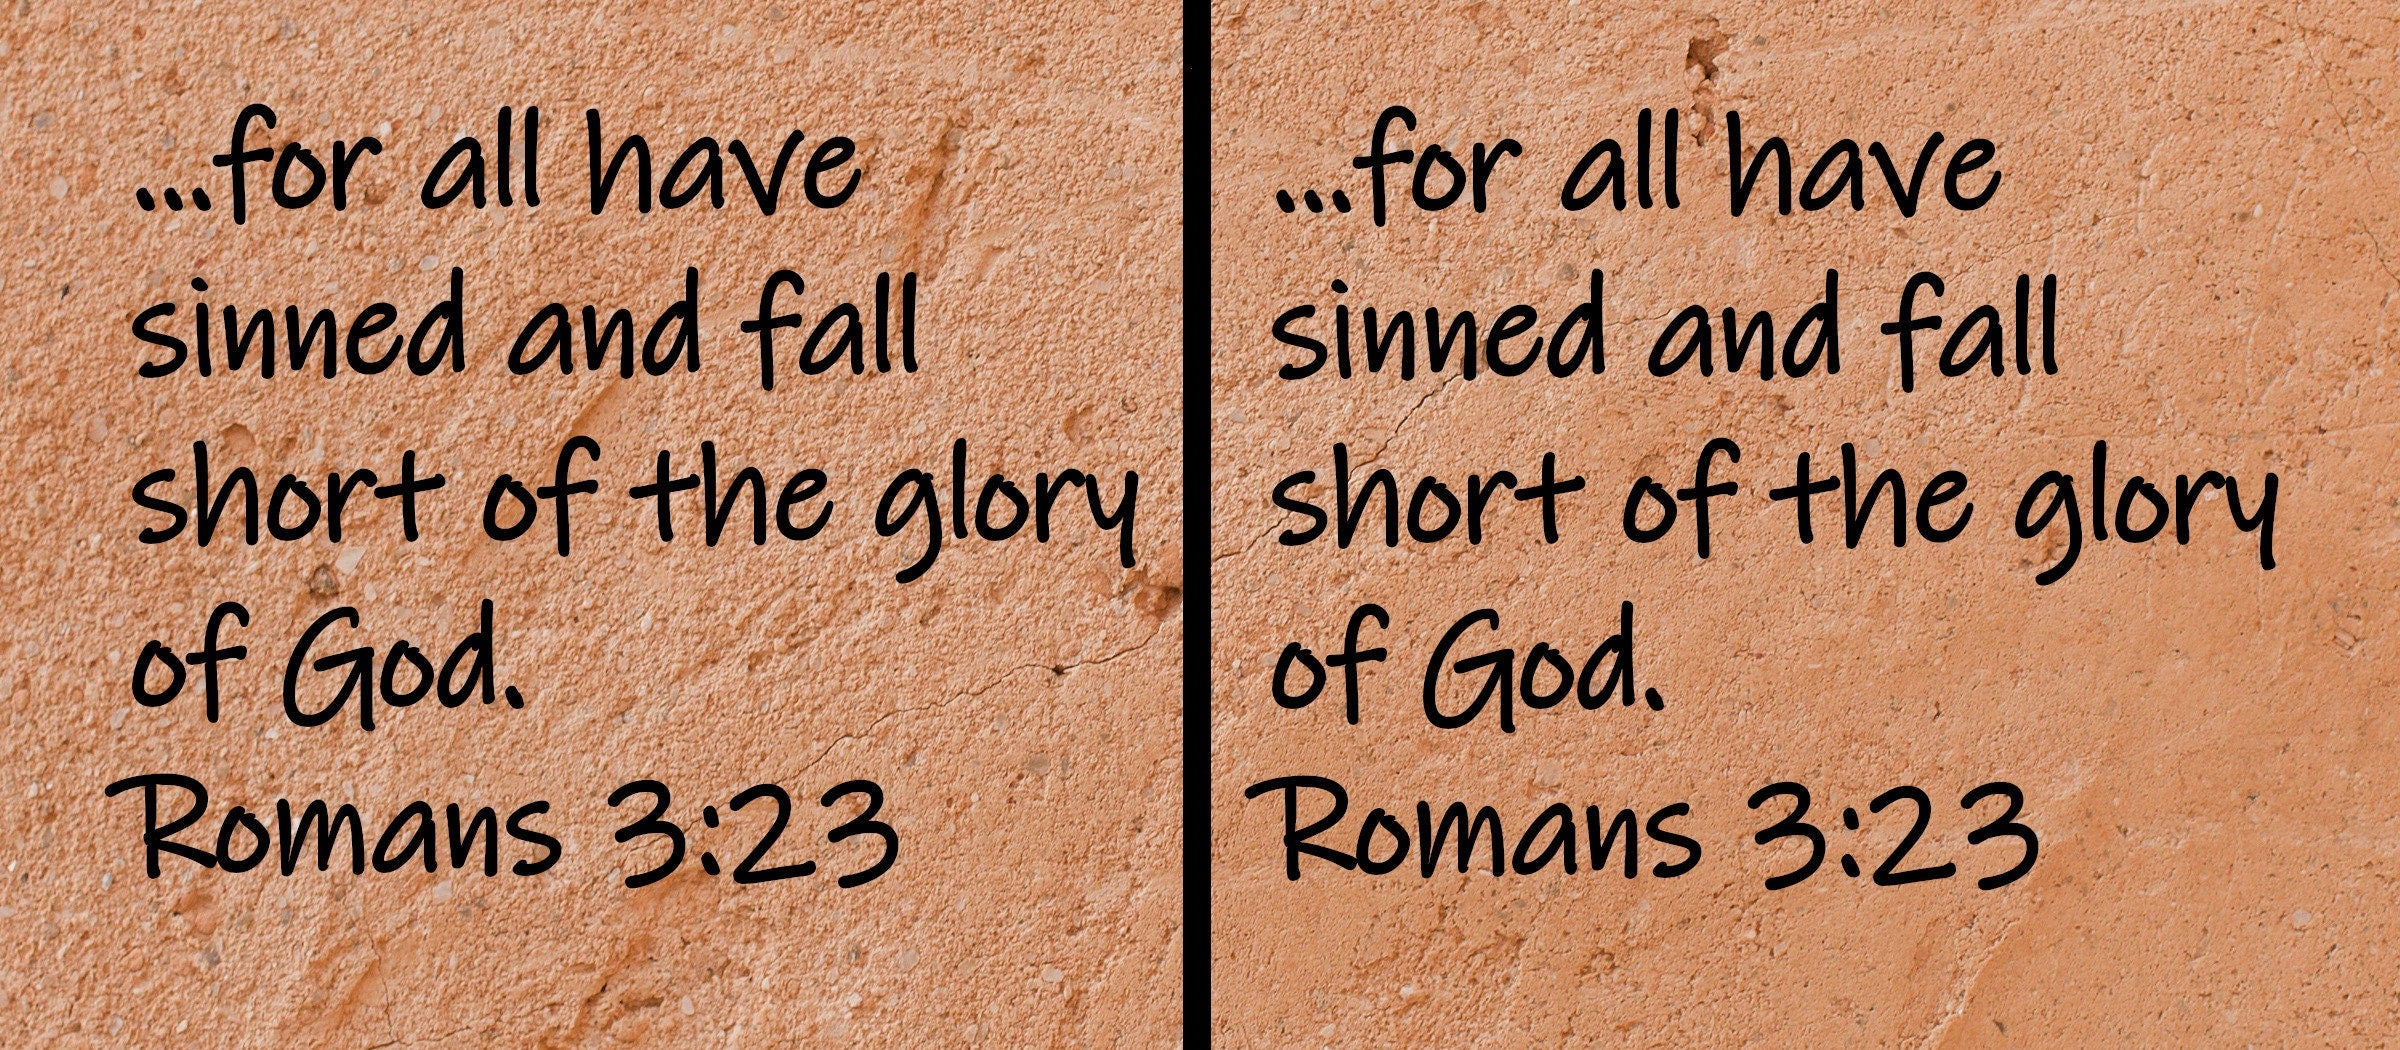 ...for all have
sinned and fall
short of the glory
of God.
Romans 3:23
...for all have
sinned and fall
short of the glory
of God.
Romans 3:23